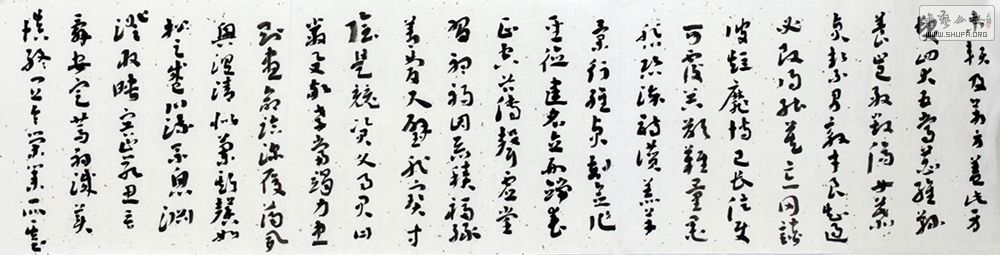 木賴及萬方蓋此身
髮四大五常恭惟鞠
養豈敢毀傷女慕
貞潔男效才良知過
必改得能莫忘罔談
彼短靡恃己長信使
可覆器欲難量墨
悲絲染詩讚羔羊
景行維賢剋念作
聖德建名立形端表
正空谷傳聲虛堂
習聽禍因惡積福緣
善慶尺璧非寶寸
陰是競資父事君曰
嚴與敬孝當竭力忠
則盡命臨深履薄夙
興溫凊似蘭斯馨如
松之盛川流不息淵
澄取映容止若思言
辭安定篤初誠美
慎終宜令榮業所基
WWW.SHUFA.ORG